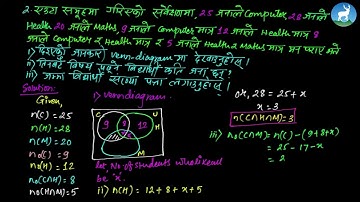 2. एउटा समूहमा गरिएको सर्वेक्षणमा, 25 जनाले Computer, 28 जनाले
Health 20 जनाले Maths, 9 जनाले Computer मात्र 12 जनाले Health मात्र 8
जनाले Computer र Health मात्र र 5 जनाले Health र Maths मात्र मन पराए भने
i) दिइएको जानकारी venn-diagram मा देखाउनुहोस् ।
ii) तिनवटै विषय पढ्ने विद्यार्थी कति जना छन् ?
iii) जम्मा विद्यार्थी संख्या पत्ता लगाउनुहोस् ।
Solution:
Given,
n(C) = 25
n(H) = 28
n(M) = 20
no(C) = 9
no(H) = 12
no(C∩H) = 8
no(H∩M) = 5
i) venn diagram.
U
C
H
9
8
12
x
5
M
let No. of students who like all
be 'x'.
ii) n(H) = 12 + 8 + x + 5
or, 28 = 25 + x
x = 3
n(C∩H∩M) = 3
iii) no(C∩M) = n(C) - (9+8+x)
= 25 - 17 - x
= 2